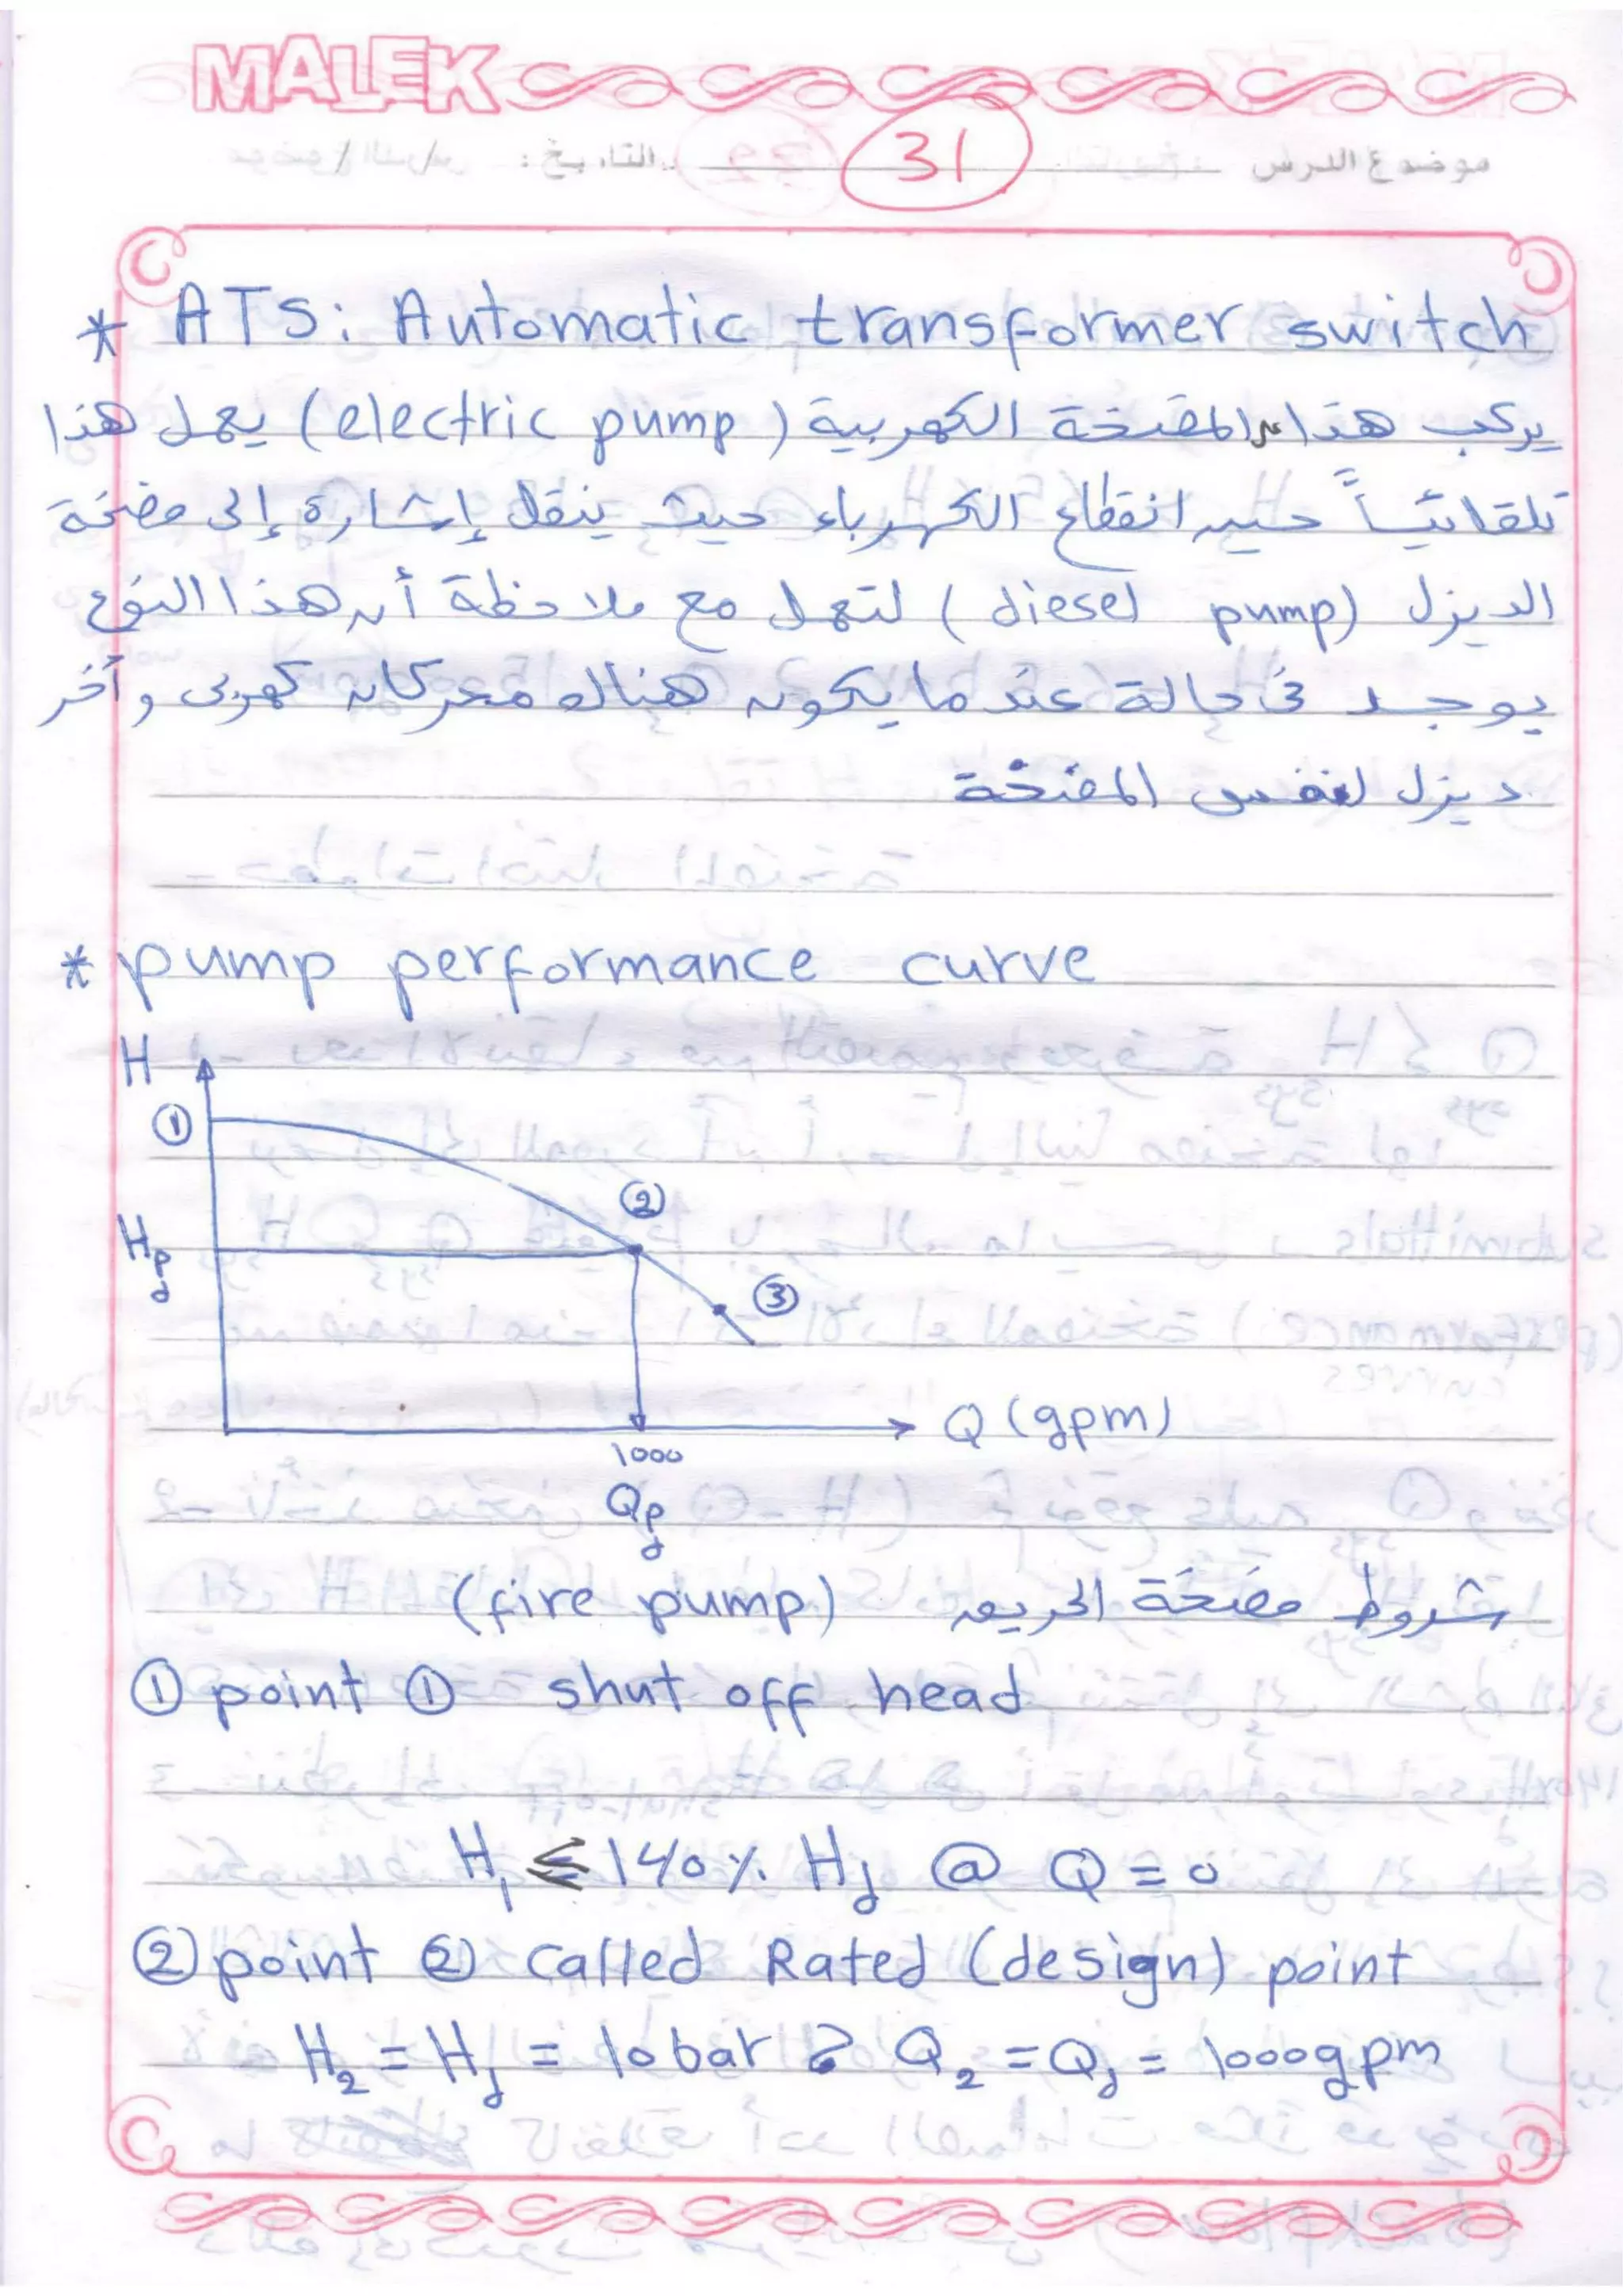 MALEK
موضوع الدرس 31 التاريخ: / /
* ATS: Automatic transformer switch
يركب هذا مع المضخة الكهربية (electric pump) يعمل هذا
تلقائياً حين انقطاع الكهرباء حيث ينقل إشارة إلى مضخة
الديزل (diesel pump) لتعمل مع ملاحظة أن هذا النوع
يوجد في حالة عندما يكون هناك محركان كهربى وآخر
ديزل لنفس المضخة
* pump performance curve
H
①
②
Hd
③
Q (gpm)
1000
Qd
شروط مضخة الحريق (fire pump)
① point ① shut off head
H1 ≤ 140% Hd @ Q = 0
② point ② called Rated (design) point
H2 = Hd = 10 bar & Q2 = Qd = 1000gpm